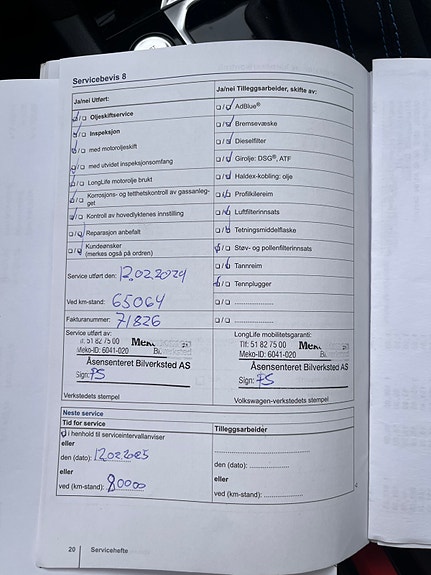 Servicebevis 8
Ja/nei Utført:
Oljeskiftservice
Inspeksjon
med motoroljeskift
med utvidet inspeksjonsomfang
LongLife motorolje brukt
Korrosjons- og tetthetskontroll av gassanleg-
get
Kontroll av hovedlyktenes innstilling
Reparasjon anbefalt
Kundeønsker
(merkes også på ordren)
Service utført den: 12.02.2024
Ved km-stand: 65064
Fakturanummer: 71826
Service utført av:
Tlf: 51 82 75 00 Meko
Meko-ID: 6041-020
Åsensenteret Bilverksted AS
Sign: PS
Verkstedets stempel
Ja/nei Tilleggsarbeider, skifte av:
AdBlue®
Bremsevæske
Dieselfilter
Girolje: DSG®, ATF
Haldex-kobling: olje
Profilkilereim
Luftfilterinnsats
Tetningsmiddelflaske
Støv- og pollenfilterinnsats
Tannreim
Tennplugger
LongLife mobilitetsgaranti:
Tlf: 51 82 75 00
Meko-ID: 6041-020
Åsensenteret Bilverksted AS
Sign: PS
Volkswagen-verkstedets stempel
Neste service
Tid for service
i henhold til serviceintervallanviser
eller
den (dato): 12.02.2025
eller
ved (km-stand): 80000
Tilleggsarbeider
den (dato):
eller
ved (km-stand):
20 Servicehefte